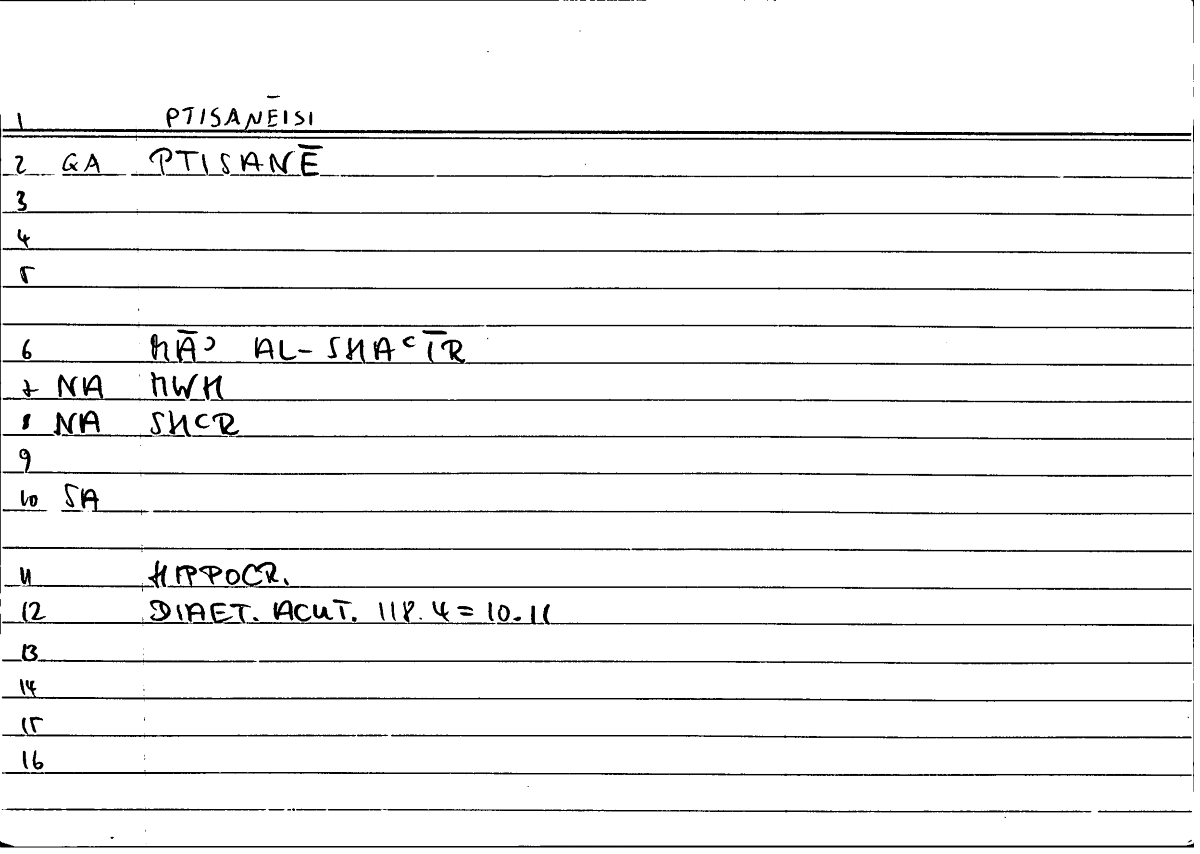 1 PTISANĒISI
2 GA PTISANĒ
3
4
5
6 MĀʾ AL-SHAʿĪR
7 NA MWH
8 NA SHʿR
9
10 SA
11 HIPPOCR.
12 DIAET. ACUT. 118.4 = 10.11
13
14
15
16